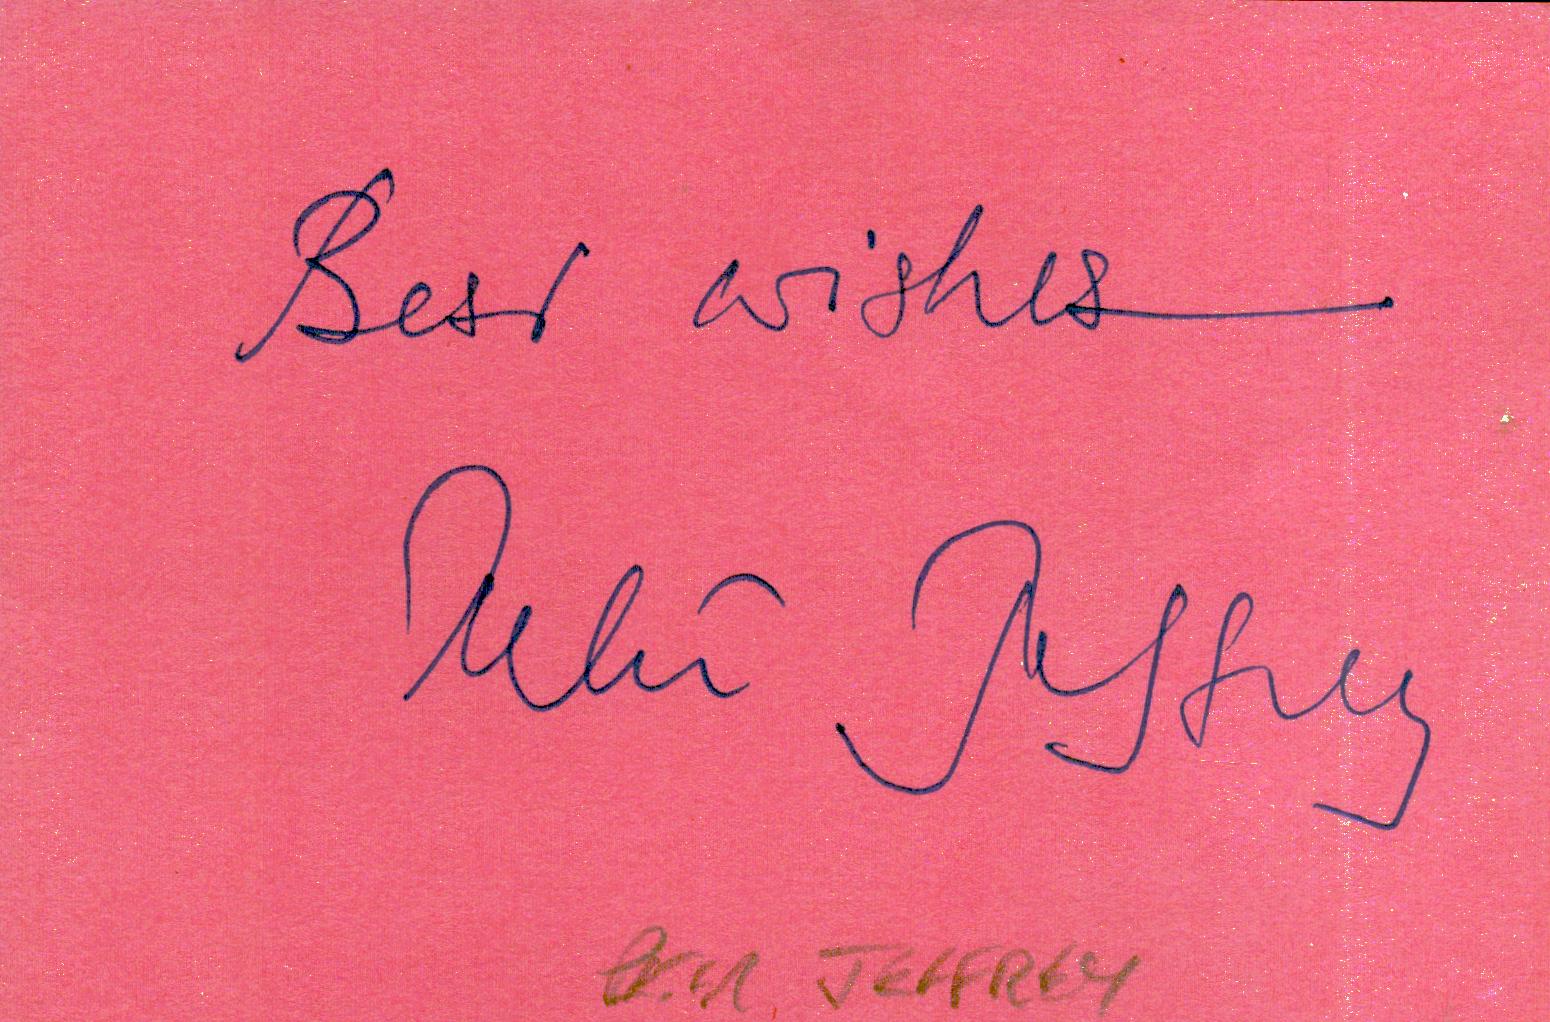 Best wishes
Peter Jeffrey
JEFFREY